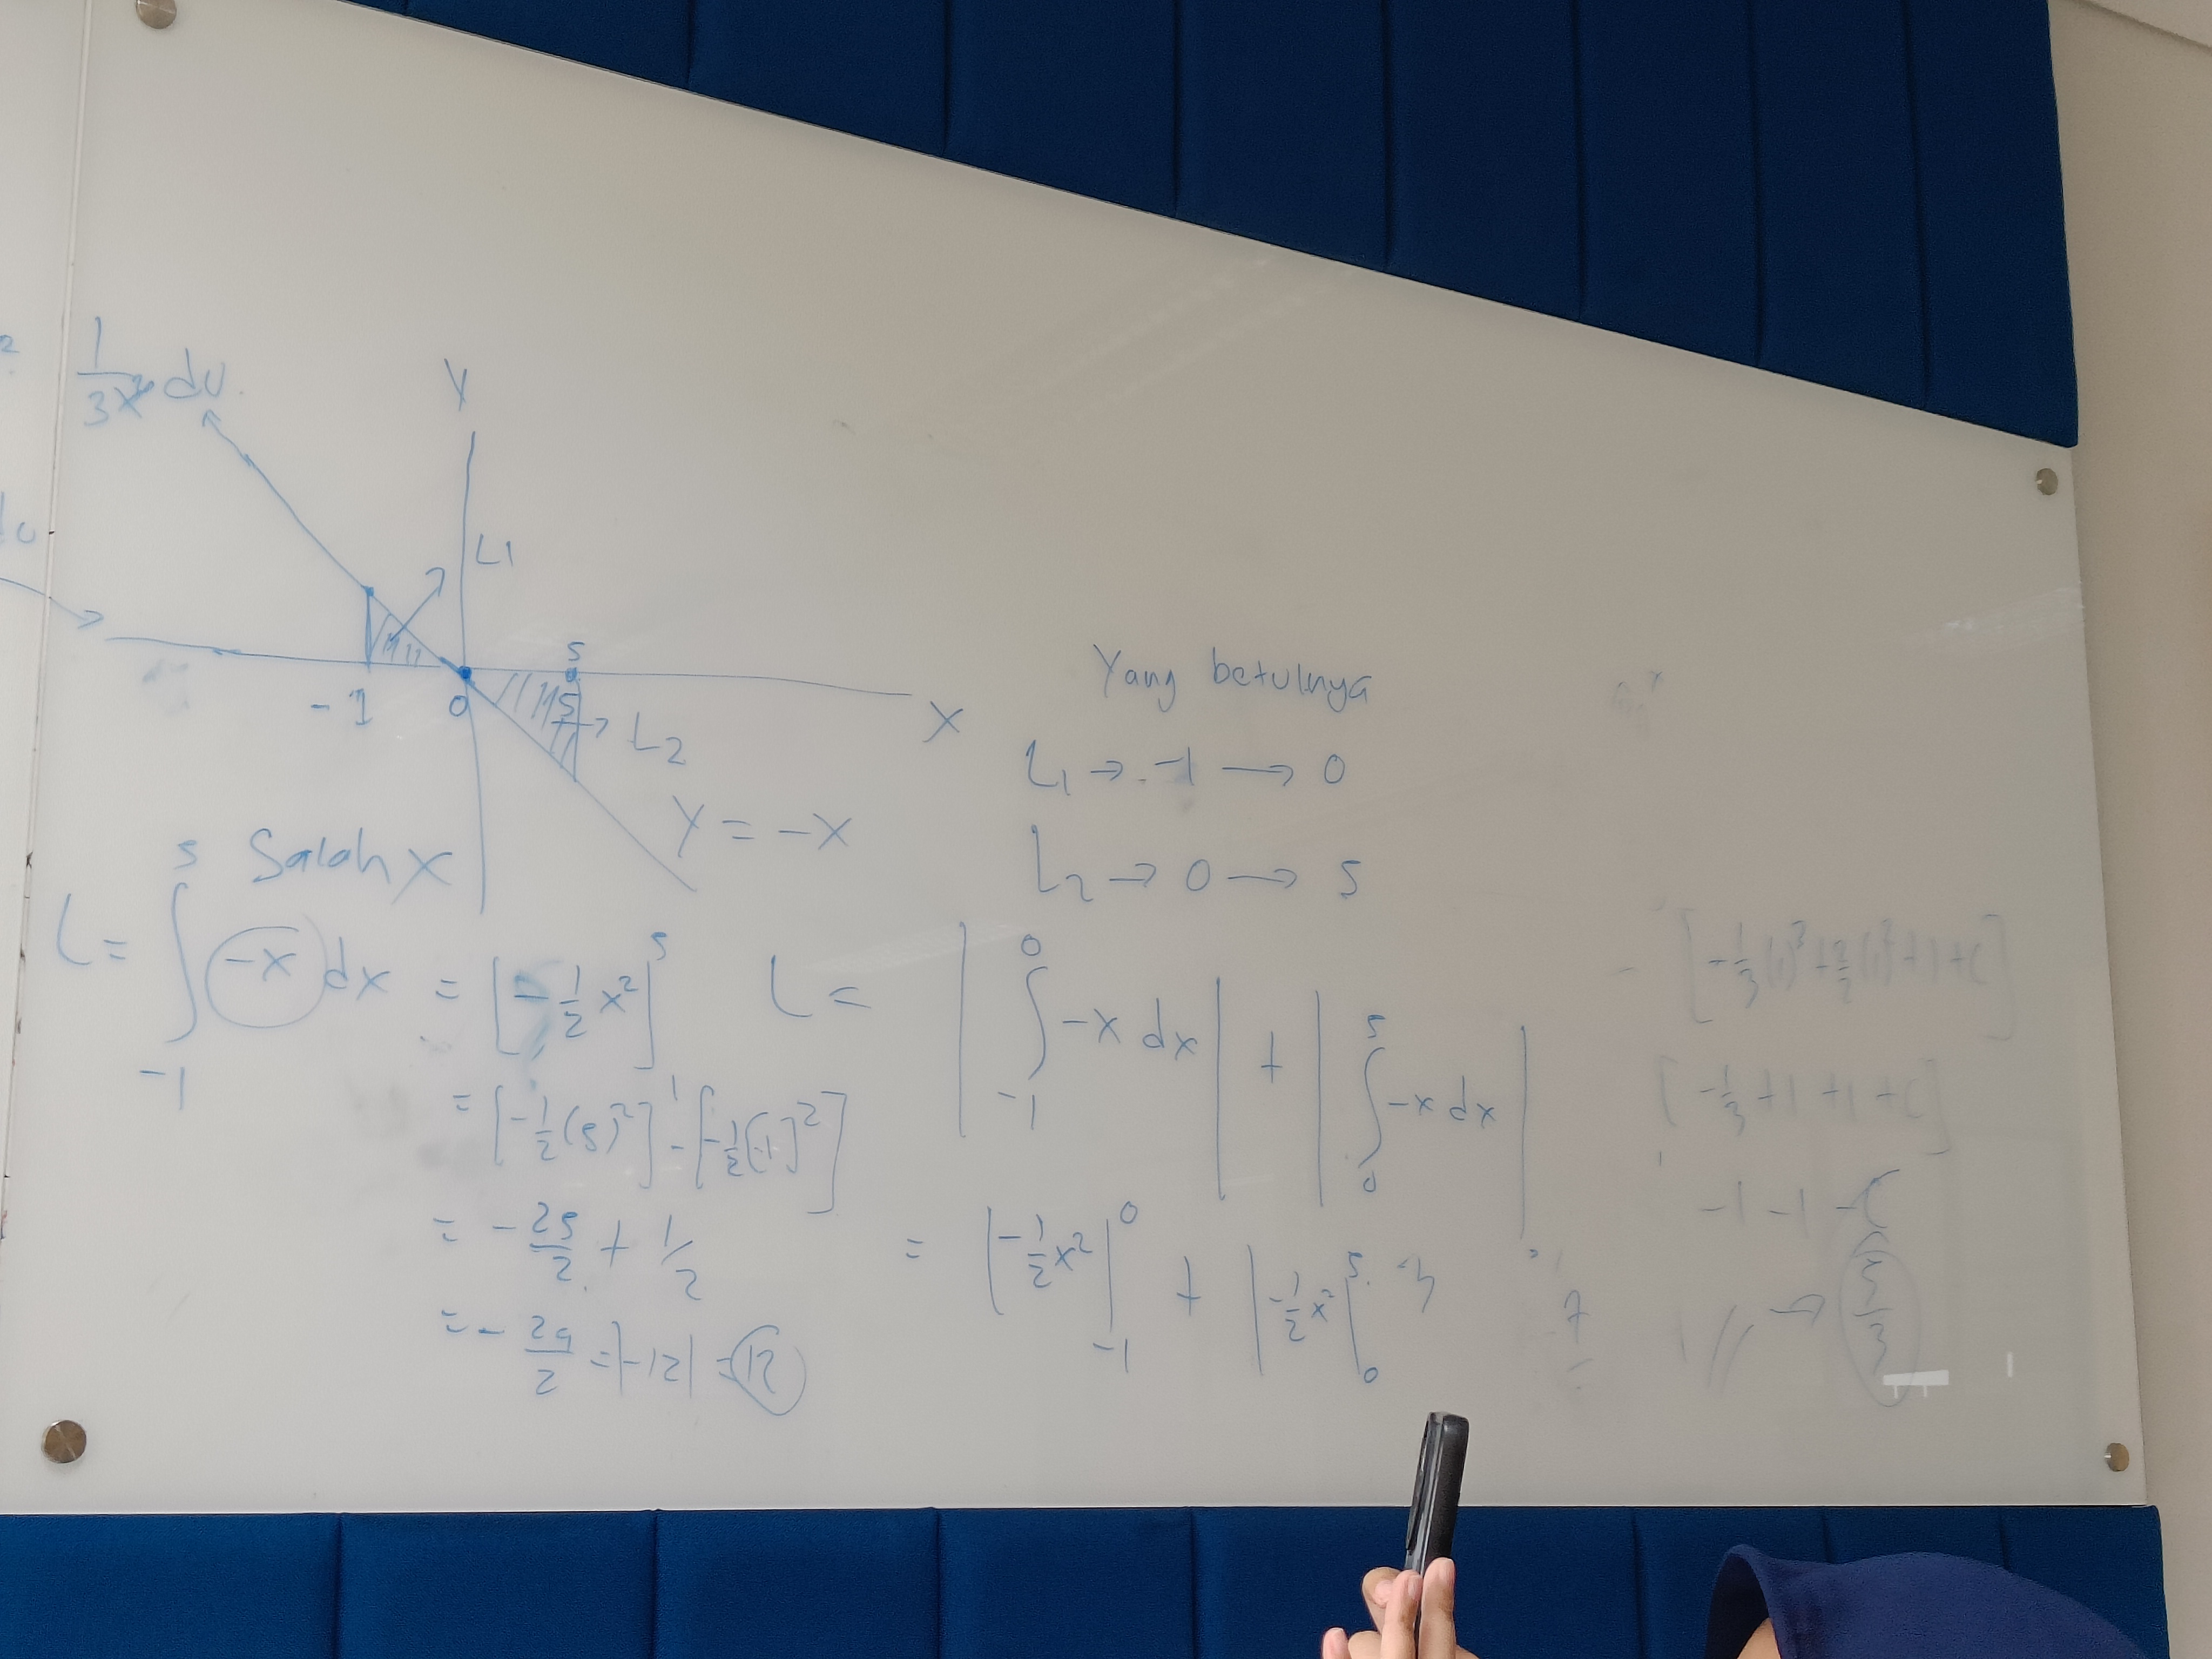 1/3x² du.
Y
L1
-1 0 5 5
L2
X
Y = -X
Salah X
L = ∫_{-1}^{5} -x dx = [-1/2 x²]^5_{-1}
= [-1/2 (5)²] - [-1/2 (-1)²]
= - 25/2 + 1/2
= - 24/2 = |-12| = 12
Yang betulnya
L₁ → -1 → 0
L₂ → 0 → 5
L = |∫_{-1}^{0} -x dx| + |∫_{0}^{5} -x dx|
= |-1/2 x²|^0_{-1} + |-1/2 x²|^5_0
- [-1/3 (1)³ + 2/2 (1)² + 1 + C]
[-1/3 + 1 + 1 + C]
-1 -1 -C